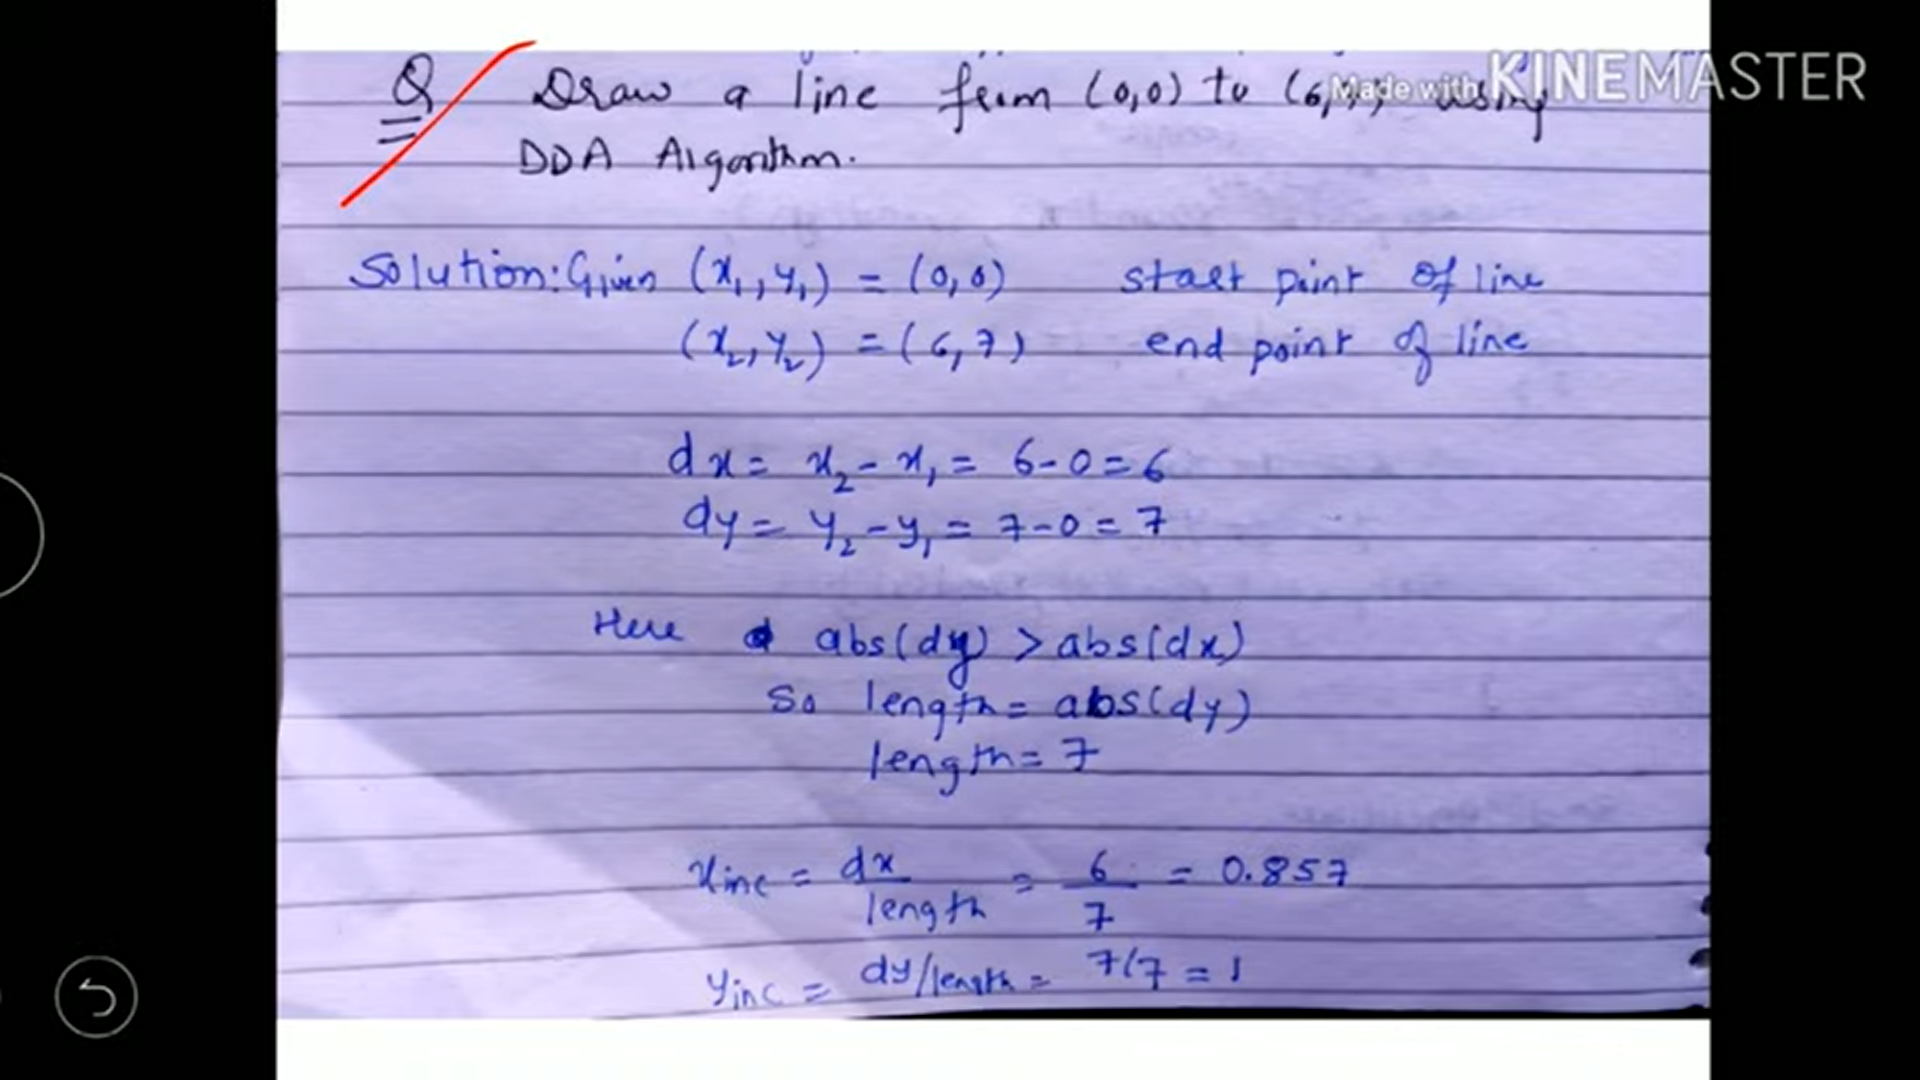 Made with KINEMASTER
Q Draw a line from (0,0) to (6,7) using
DDA Algorithm.
Solution: Given (x₁, y₁) = (0,0) start point of line
(x₂, y₂) = (6,7) end point of line
dx = x₂ - x₁ = 6-0 = 6
dy = y₂ - y₁ = 7-0 = 7
Here abs(dy) > abs(dx)
So length = abs(dy)
length = 7
xinc = dx/length = 6/7 = 0.857
yinc = dy/length = 7/7 = 1